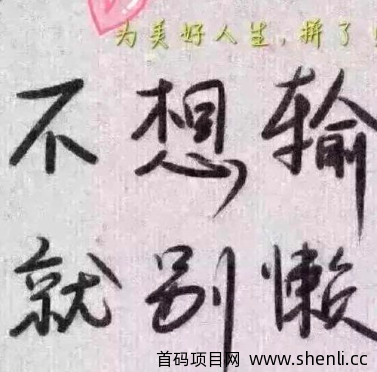 为美好人生,拼了
不想输
就别懒
首码项目网 www.shenli.cc